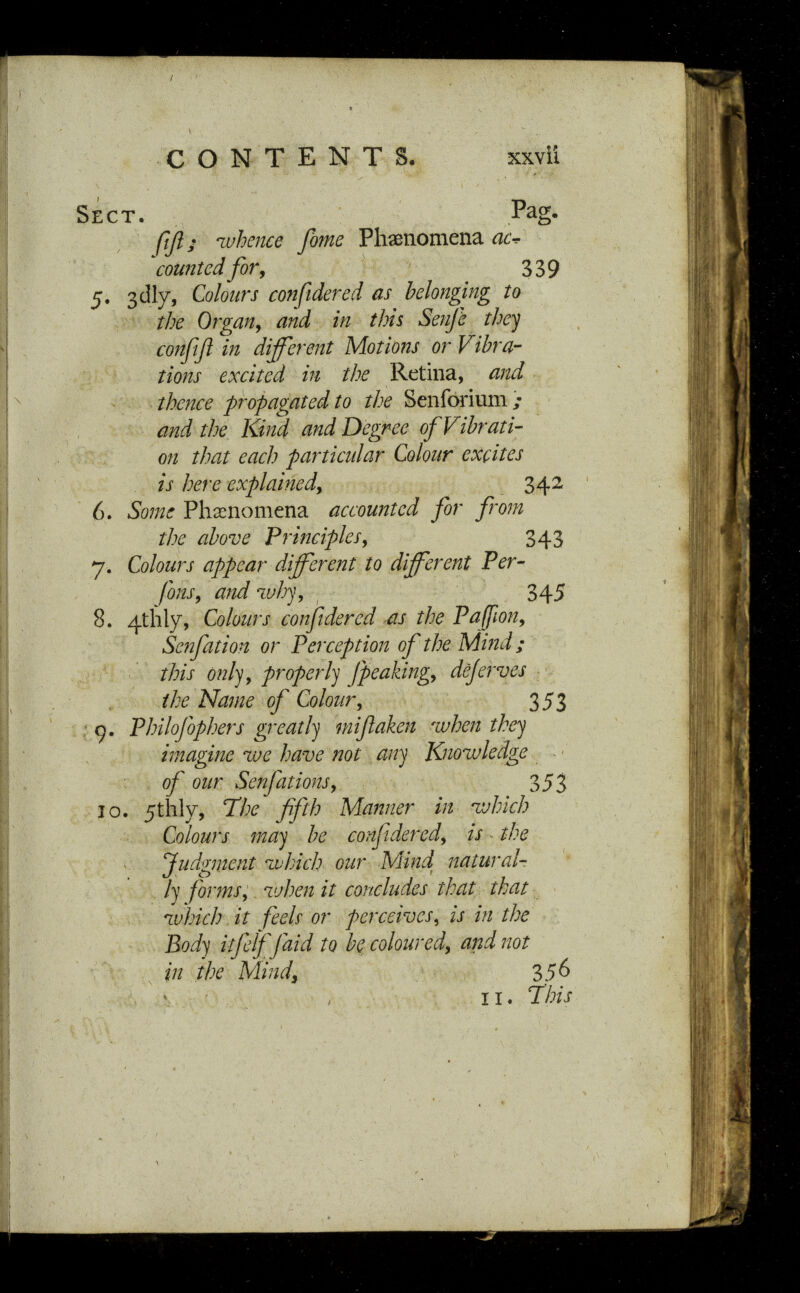 CONTENTS. xxvii
SECT. Pag.
ſiſt; whence ſome Phænomena ac-
counted for, 339
5. 3dly, Colours conſidered as belonging to
the Organ, and in this Senſe they
conſiſt in different Motions or Vibra-
tions excited in the Retina, and
thence propagated to the Senſorium;
and the Kind and Degree of Vibrati-
on that each particular Colour excites
is here explained, 342
6. Some Phænomena accounted for from
the above Principles, 343
7. Colours appear different to different Per-
ſons, and why, 345
8. 4thly, Colours conſidered as the Paſſion,
Senſation or Perception of the Mind;
this only, properly ſpeaking, deſerves
the Name of Colour, 353
9. Philoſophers greatly miſtaken when they
imagine we have not any Knowledge
of our Senſations, 353
10. 5thly, The fifth Manner in which
Colours may be conſidered, is the
Judgment which our Mind natural-
ly forms, when it concludes that that
which it feels or perceives, is in the
Body itſelf ſaid to be coloured, and not
in the Mind, 356
11. This